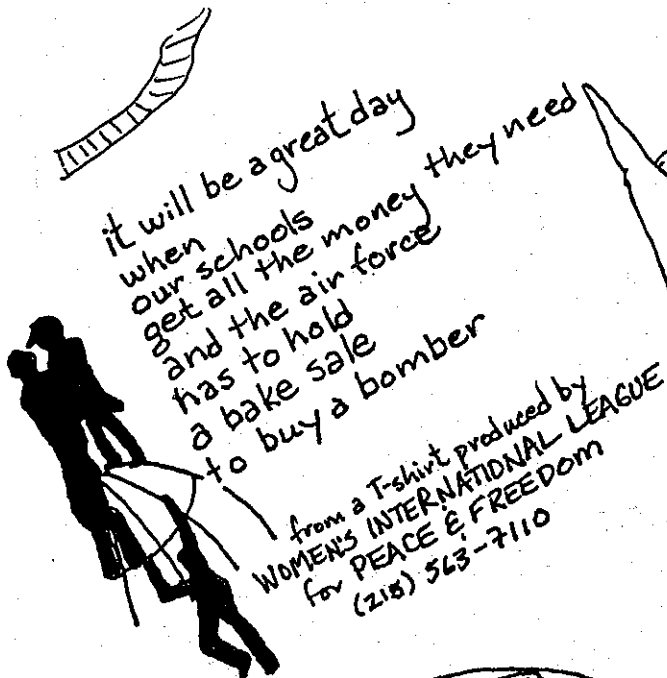 it will be a great day
when
our schools
get all the money they need
and the air force
has to hold
a bake sale
to buy a bomber
from a T-shirt produced by
WOMEN'S INTERNATIONAL LEAGUE
for PEACE & FREEDOM
(215) 563-7110